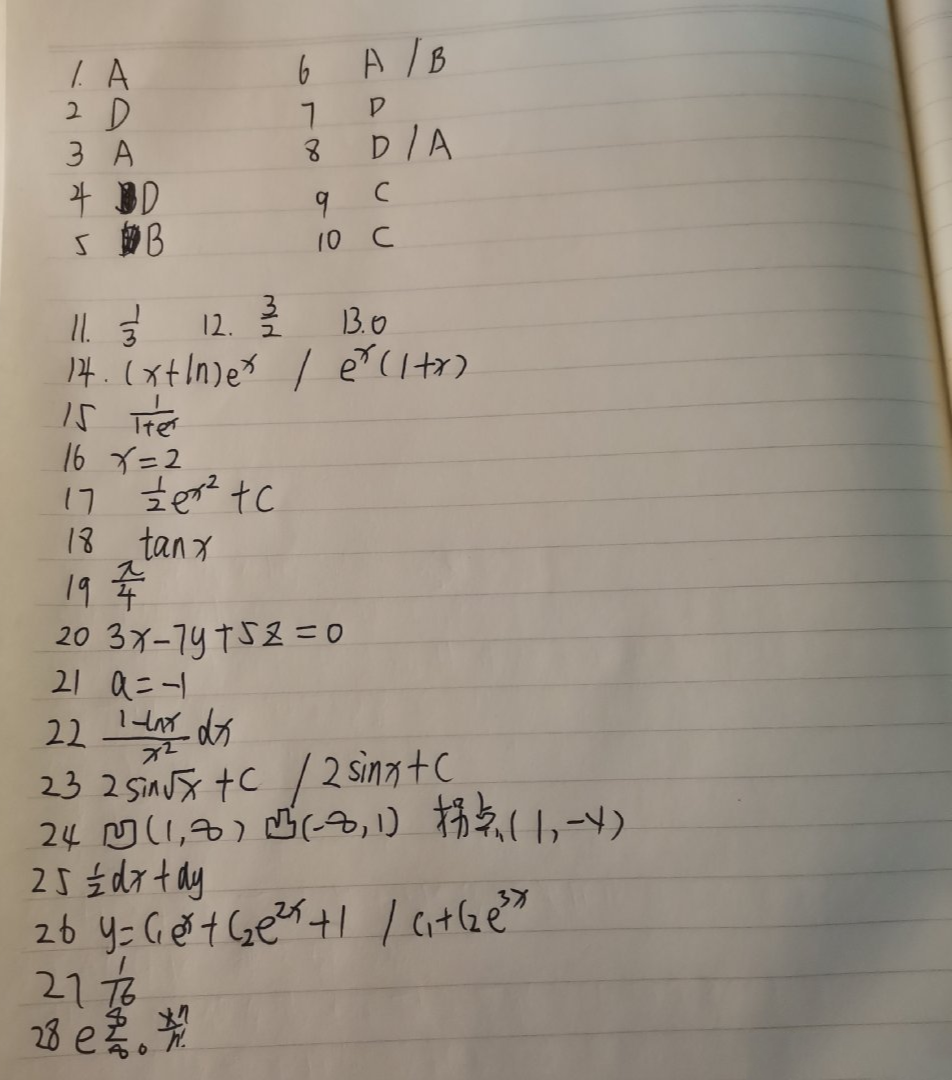 1. A 6 A / B
2 D 7 D
3 A 8 D / A
4 D 9 C
5 B 10 C
11. 1/3 12. 3/2 13.0
14. (x+ln)e^x / e^x(1+x)
15 1/(1+e^x)
16 x=2
17 1/2 e^x² + C
18 tanx
19 π/4
20 3x-7y+5z=0
21 a=-1
22 (1-lnx)/x² dx
23 2sin√x+C / 2sinx+C
24 凹(1,∞) 凸(-∞,1) 拐点(1,-4)
25 1/2dx+dy
26 y=C₁e^x+C₂e^2x+1 / C₁+C₂e^3x
27 1/16
28 e